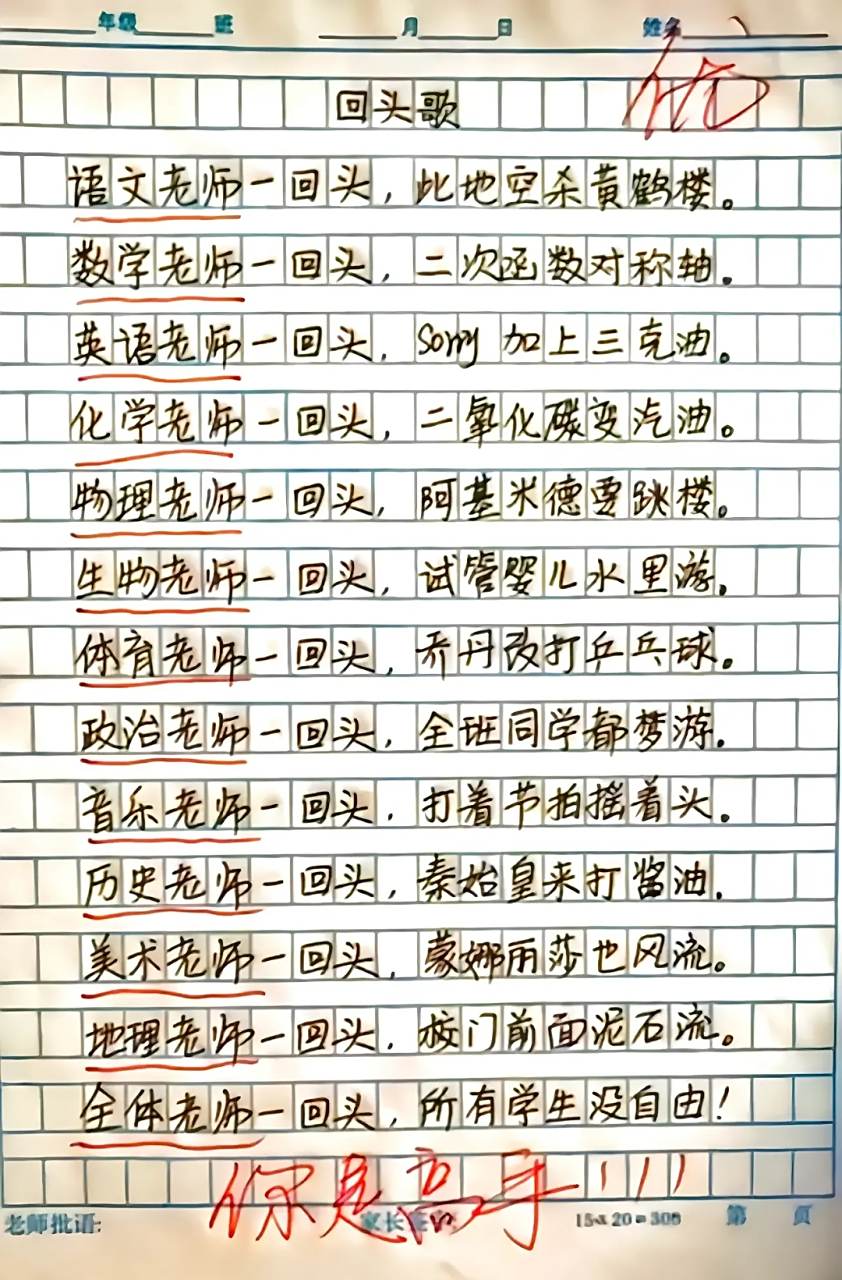 年级 班 月 日 姓名
优
回头歌
语文老师一回头，此地空杀黄鹤楼。
数学老师一回头，二次函数对称轴。
英语老师一回头，Sorry 加上三克油。
化学老师一回头，二氧化碳变汽油。
物理老师一回头，阿基米德要跳楼。
生物老师一回头，试管婴儿水里游。
体育老师一回头，乔丹改打乒乓球。
政治老师一回头，全班同学都梦游。
音乐老师一回头，打着节拍摇着头。
历史老师一回头，秦始皇来打酱油.
美术老师一回头，蒙娜丽莎也风流。
地理老师一回头，校门前面泥石流。
全体老师一回头，所有学生没自由！
你是高手！！！
老师批语: 家长 15×20=300 第 页